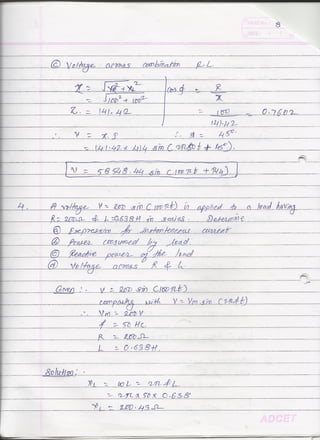 8
© Voltage across combination R-L
Z = √R² + X_L² | cosφ = R/Z
= √100² + 100² = 100/141.42 = 0.7602
Z = 141.42
∴ V = Z.I ∴ φ = 45°
= 141.42 × 414 sin (2π50t + 45°).
V = 58548.44 sin (100πt + π/4)
4. A voltage V = 200 sin (100πt) is applied to a load having
R = 200Ω & L = 0.638H in series. Determine
ⓐ Expression for instantaneous current
ⓑ Power consumed by load
© Reactive power of the load
ⓓ Voltage across R & L
Given :- V = 200 sin (100πt)
comparing with V = Vm sin (2πft)
∴ Vm = 200V
f = 50 Hz
R = 200Ω
L = 0.638H.
Solution:-
X_L = ωL = 2πfL
= 2π × 50 × 0.638
X_L = 200.43Ω
ADCET